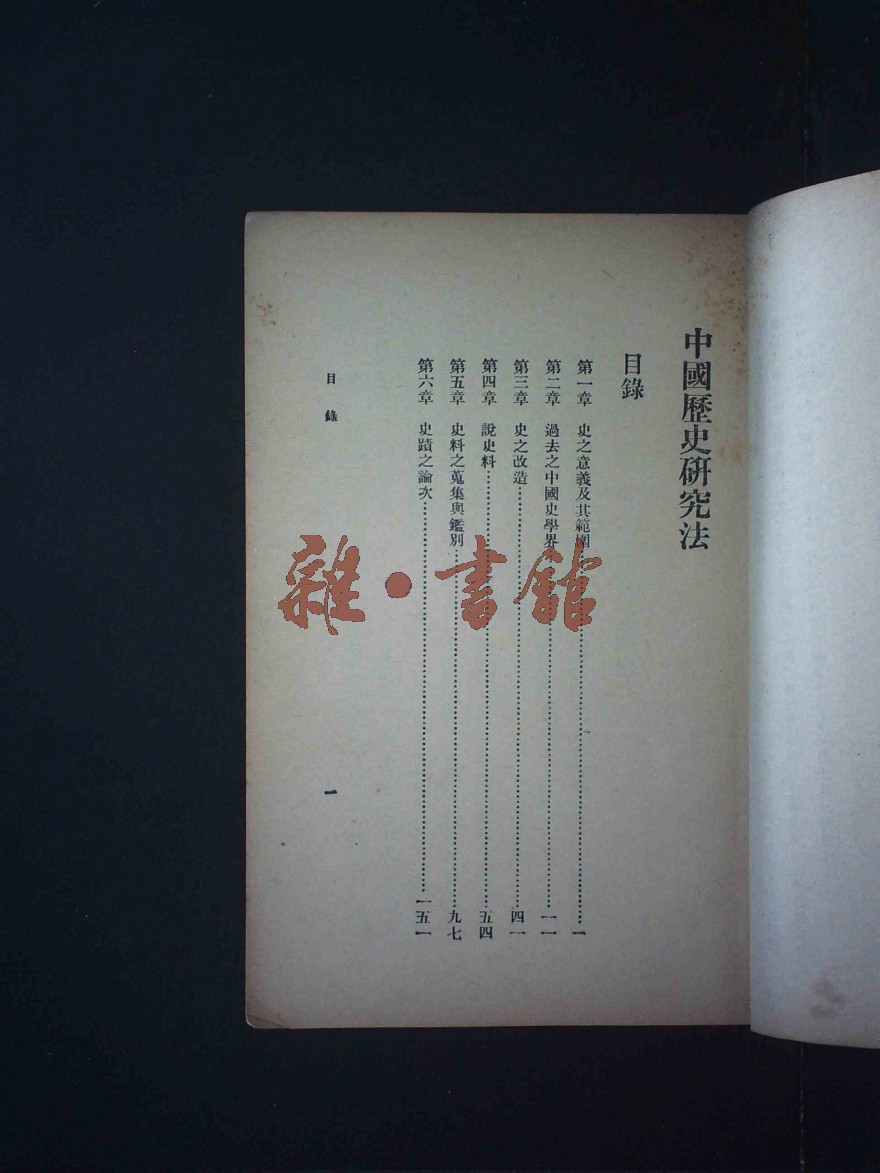 中國歷史研究法
目錄
第一章　史之意義及其範圍……一
第二章　過去之中國史學界……一一
第三章　史之改造……四一
第四章　說史料……五四
第五章　史料之蒐集與鑑別……九七
第六章　史蹟之論次……一五一
目錄　一
雜·書館